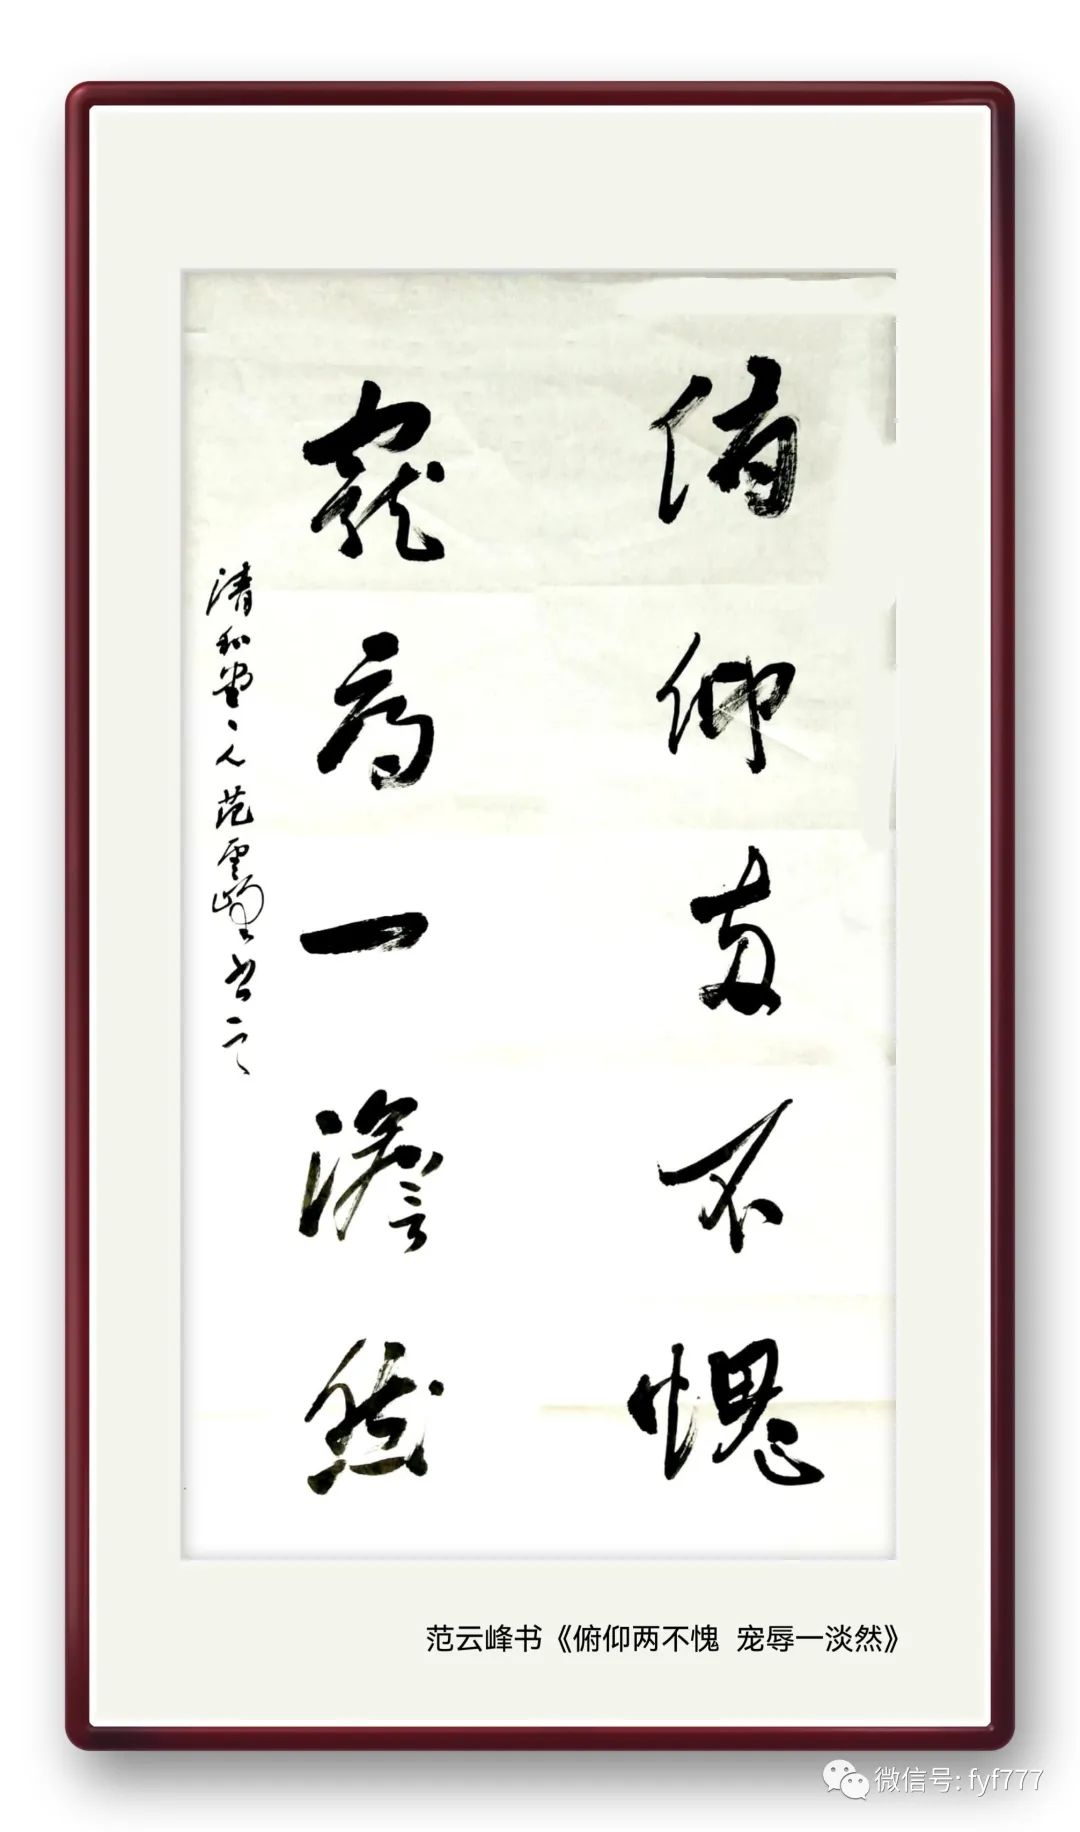 俯仰两不愧
寵辱一澹然
清和堂主人范雲峰書之
范云峰书《俯仰两不愧 宠辱一淡然》
微信号: fyf777